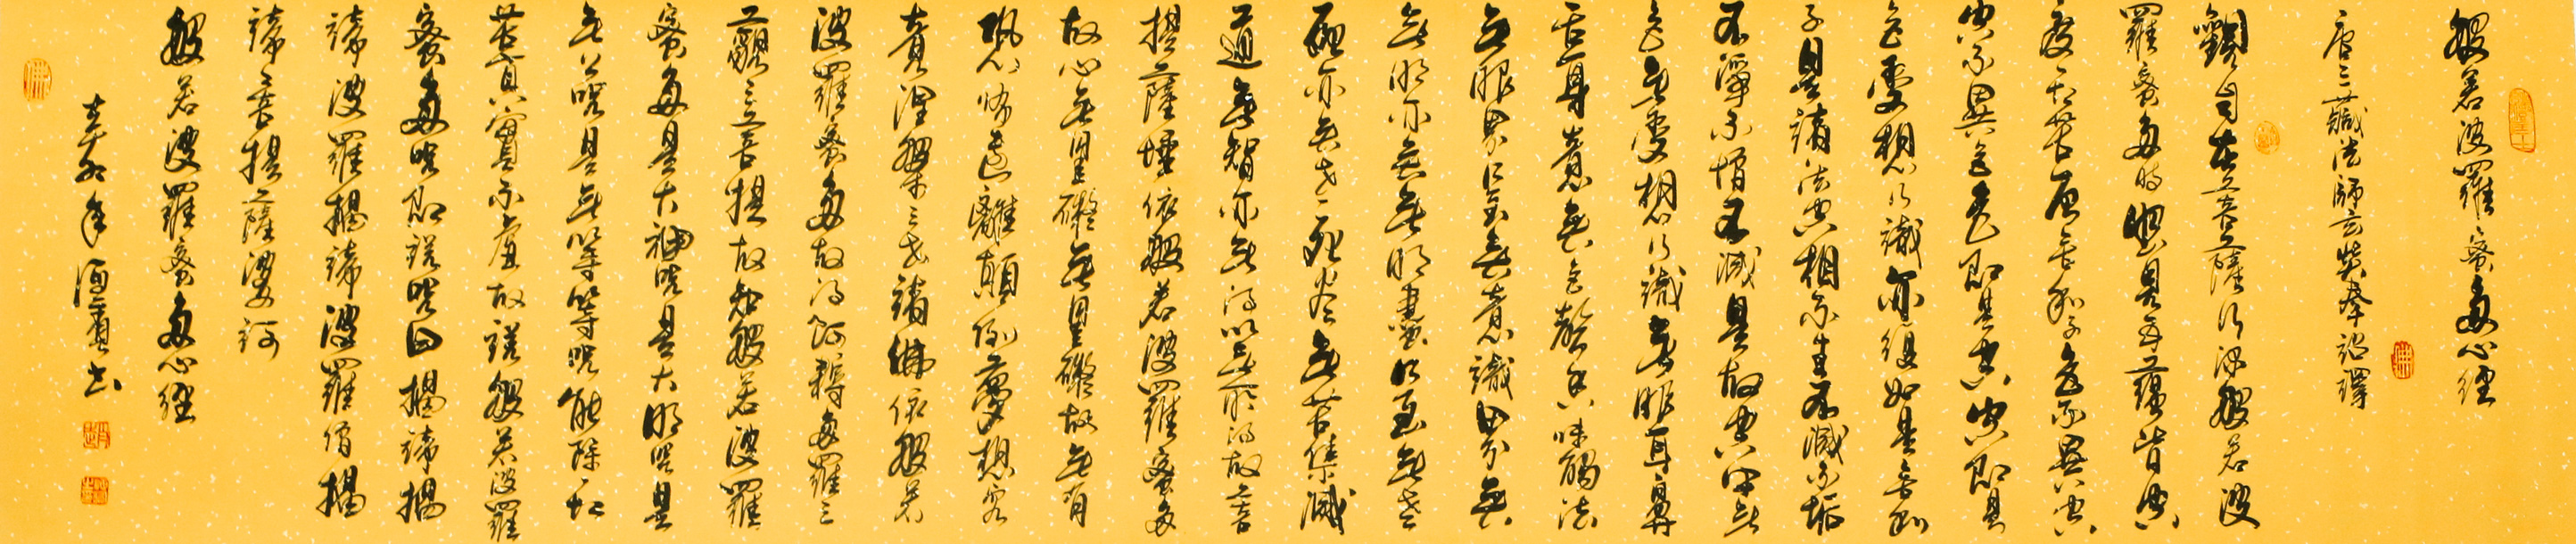 般若波羅蜜多心經
唐三藏法師玄奘奉詔譯
觀自在菩薩行深般若波
羅蜜多時照見五蘊皆空
度一切苦厄舍利子色不異空
空不異色色即是空空即是
色受想行識亦復如是舍利
子是諸法空相不生不滅不垢
不淨不增不減是故空中無
色無受想行識無眼耳鼻
舌身意無色聲香味觸法
無眼界乃至無意識界無
無明亦無無明盡乃至無老
死亦無老死盡無苦集滅
道無智亦無得以無所得故菩
提薩埵依般若波羅蜜多
故心無罣礙無罣礙故無有
恐怖遠離顛倒夢想究
竟涅槃三世諸佛依般若
波羅蜜多故得阿耨多羅三
藐三菩提故知般若波羅
蜜多是大神咒是大明咒是
無上咒是無等等咒能除一切
苦真實不虛故說般若波羅
蜜多咒即說咒曰揭諦揭
諦波羅揭諦波羅僧揭
諦菩提薩婆訶
般若波羅蜜多心經